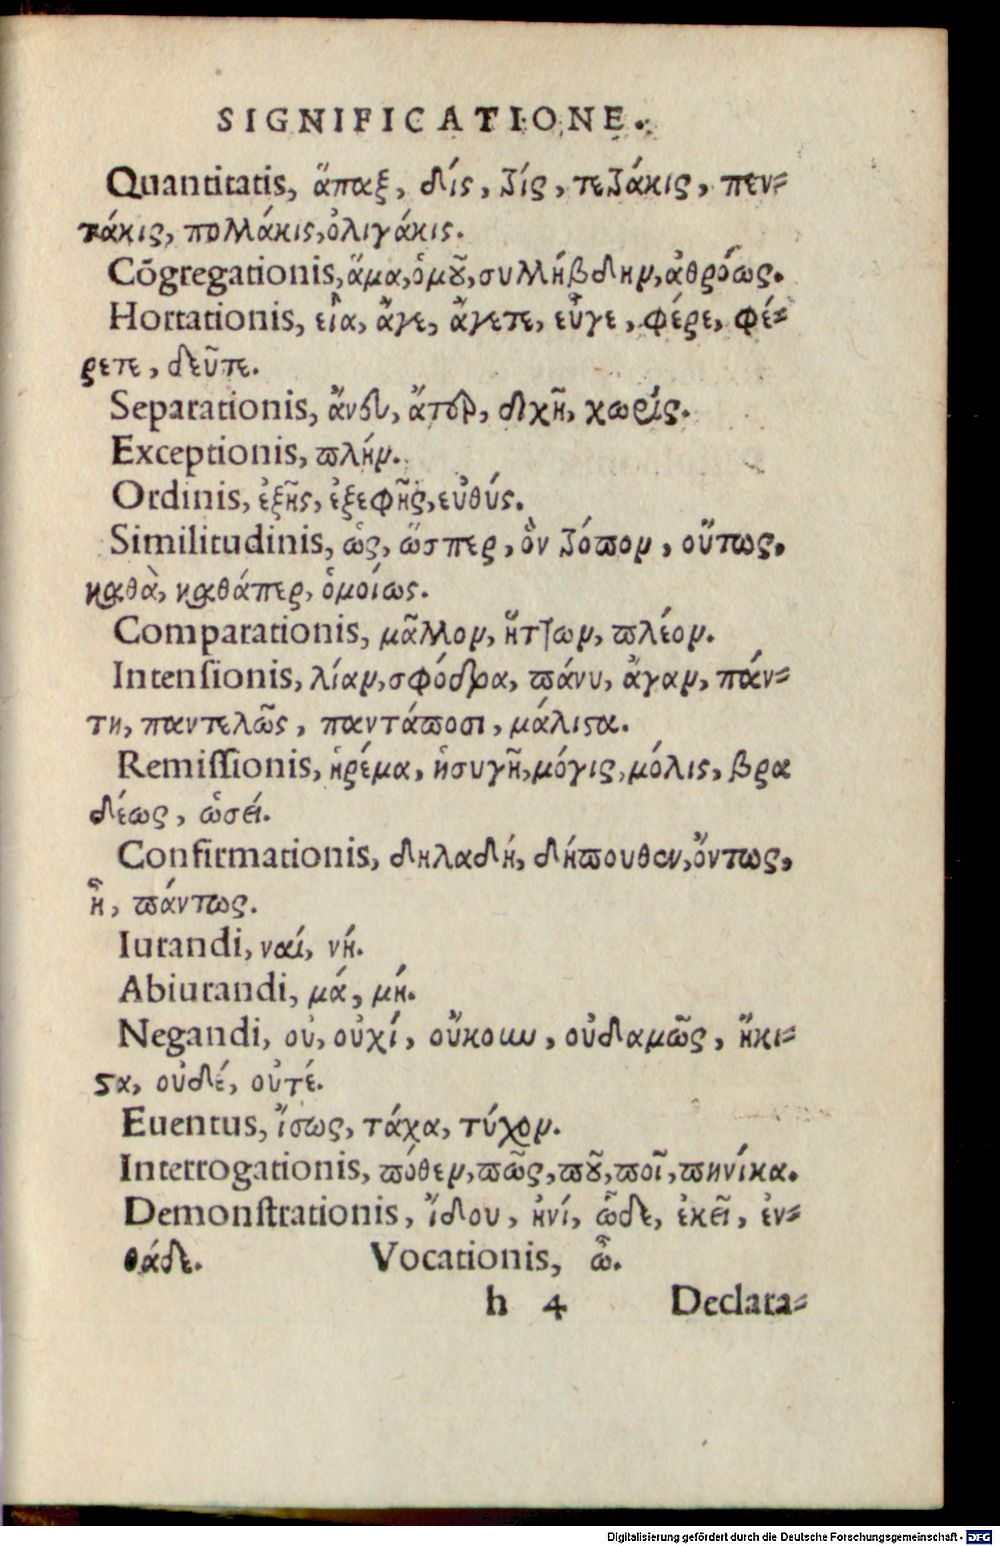 SIGNIFICATIONE.
Quantitatis, ἅπαξ, δίς, τρίς, τετράκις, πεν-
τάκις, πολλάκις, ὀλιγάκις.
Cōgregationis, ἅμα, ὁμοῦ, συλλήβδην, ἀθρόως.
Hortationis, εἶα, ἄγε, ἄγετε, εὖγε, φέρε, φέ-
ρετε, δεῦτε.
Separationis, ἄνευ, ἄτερ, διχῆ, χωρίς.
Exceptionis, πλήν.
Ordinis, ἑξῆς, ἐξεφῆς, εὐθύς.
Similitudinis, ὡς, ὥσπερ, ὃν τρόπον, οὕτως,
καθὰ, καθάπερ, ὁμοίως.
Comparationis, μᾶλλον, ἧττων, πλέον.
Intensionis, λίαν, σφόδρα, πάνυ, ἄγαν, πάν-
τη, παντελῶς, παντάποσι, μάλιστα.
Remissionis, ἠρέμα, ἡσυγῆ, μόγις, μόλις, βρα
δέως, ὡσεί.
Confirmationis, δηλαδή, δήπουθεν, ὄντως,
ἦ, πάντως.
Iurandi, ναί, νή.
Abiurandi, μά, μή.
Negandi, οὐ, οὐχί, οὔκουν, οὐδαμῶς, ἥκι-
στα, οὐδέ, οὐτέ.
Euentus, ἴσως, τάχα, τύχον.
Interrogationis, πόθεν, πῶς, ποῦ, ποῖ, πηνίκα.
Demonstrationis, ἴδου, ἠνί, ὧδε, ἐκεῖ, ἐν-
θάδε. Vocationis, ὦ.
h 4 Declara-
Digitalisierung gefördert durch die Deutsche Forschungsgemeinschaft - DFG